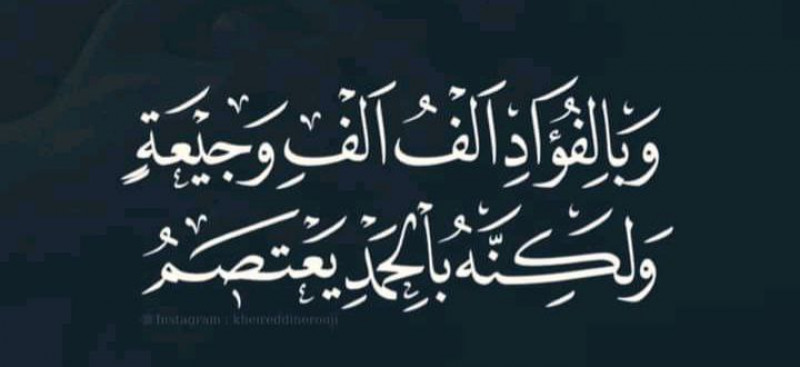 وَبِالفُؤَادِ اَلْفُ اَلْفِ وَجِيْعَةٍ
وَلَكِنَّهُ بِالْحَمْدِ يَعْتَصِمُ
Instagram : kheireddinerouji